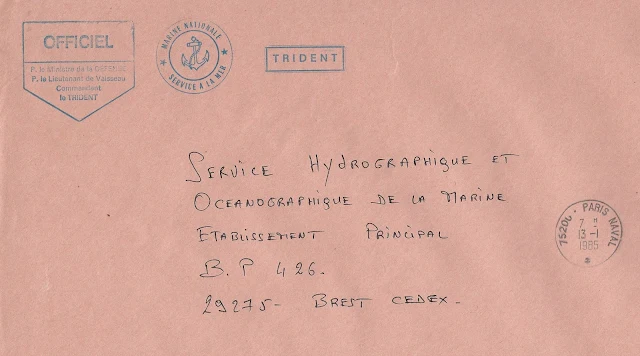 OFFICIEL
P. le Ministre de la DEFENSE
P. le Lieutenant de Vaisseau
Commandant
le TRIDENT
MARINE NATIONALE
SERVICE A LA MER
TRIDENT
SERVICE HYDROGRAPHIQUE ET
OCEANOGRAPHIQUE DE LA MARINE
ETABLISSEMENT PRINCIPAL
B.P 426.
29275- BREST CEDEX.
PARIS NAVAL
13-1
1985